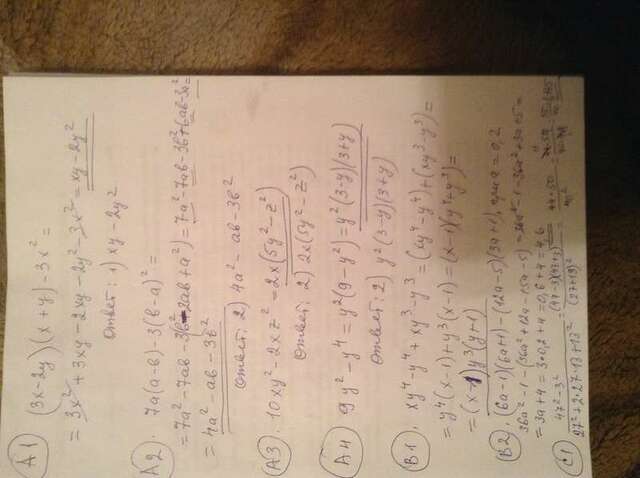 А1 (3x-2y)(x+y)-3x²=
= 3x² + 3xy - 2xy - 2y² - 3x² = xy - 2y²
Ответ: 1) xy - 2y²
А2. 7a(a-в)-3(в-a)²=
= 7a² - 7aв - 3(в² - 2aв + a²) = 7a² - 7aв - 3в² + 6aв - 3a² =
= 4a² - aв - 3в²
Ответ: 2) 4a² - aв - 3в²
А3. 10xy² - 2xz² = 2x(5y² - z²)
Ответ: 2) 2x(5y² - z²)
А4 9y² - y⁴ = y²(9 - y²) = y²(3-y)(3+y)
Ответ: 2) y²(3-y)(3+y)
В1. xy⁴ - y⁴ + xy³ - y³ = (xy⁴ - y⁴) + (xy³ - y³) =
= y⁴(x-1) + y³(x-1) = (x-1)(y⁴ + y³) =
= (x-1)y³(y+1)
В2. (6a-1)(6a+1) - (12a-5)(3a+1), при a = 0,2
36a² - 1 - (36a² + 12a - 15a - 5) = 36a² - 1 - 36a² + 3a + 5 =
= 3a + 4 = 3·0,2 + 4 = 0,6 + 4 = 4,6
С1 47² - 3² / 27² + 2·27·13 + 13² = (47-3)(47+3) / (27+13)² = 44·50 / 40² =